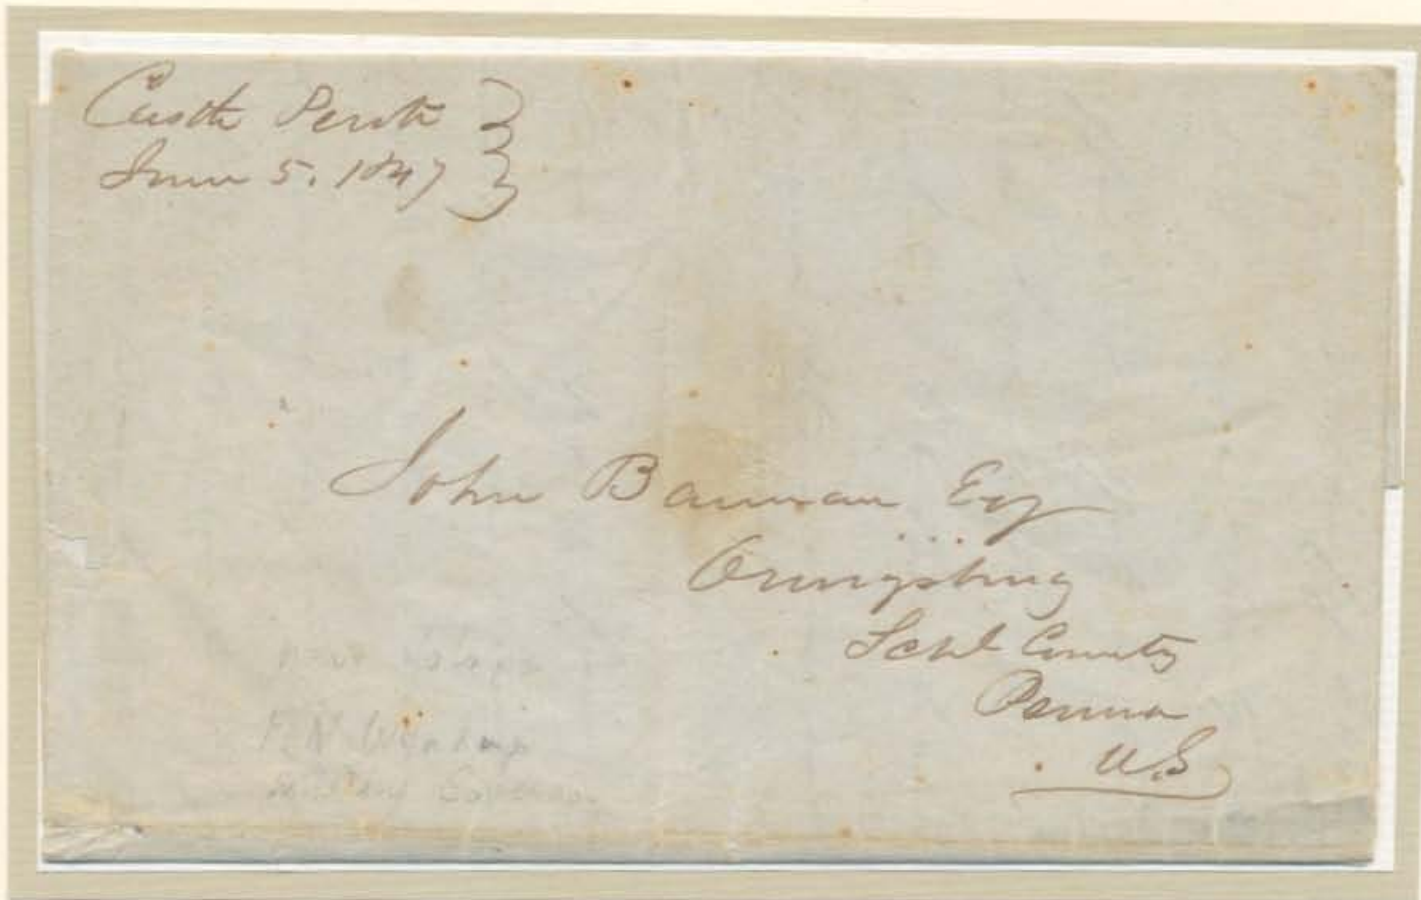 Castle Perote
June 5. 1847
John Bannan Esq
Orwigsburg
Schl County
Penna
U.S
F. N. Wynkoop